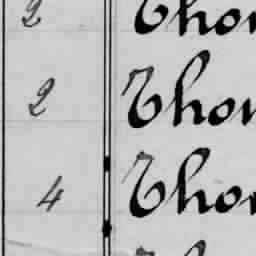 2 Thon
2 Thon
4 Thon